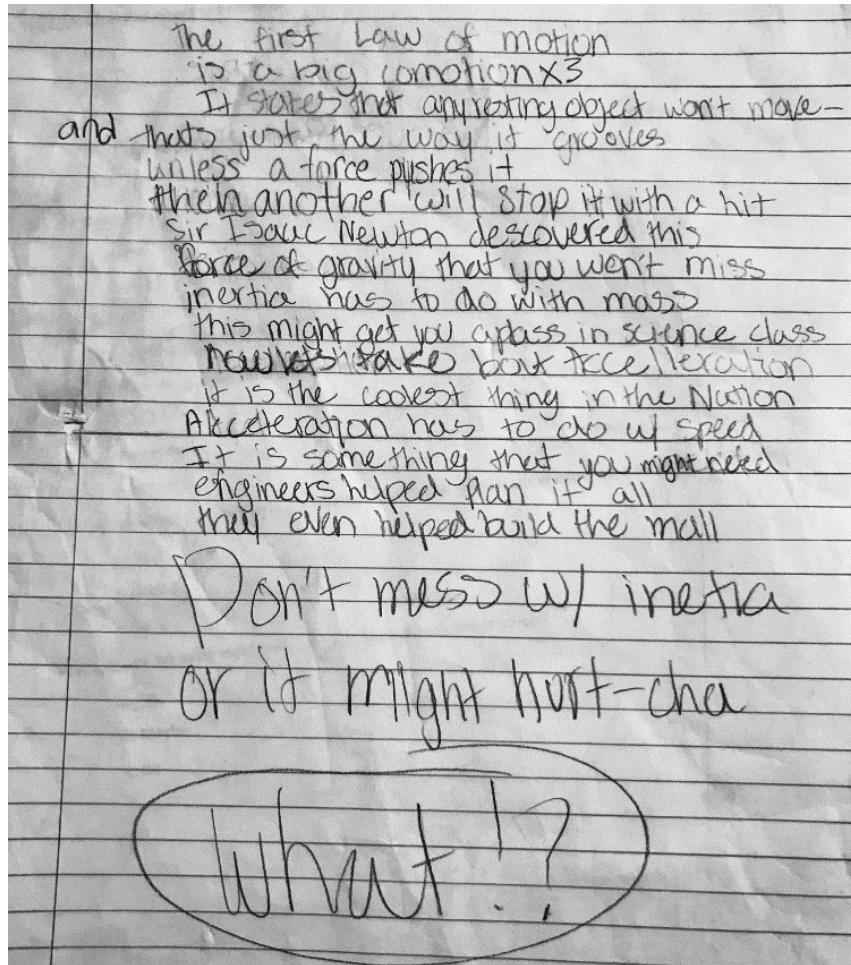 The first Law of motion
is a big comotion x3
It states that any resting object won't move-
and thats just the way it grooves
unless a force pushes it
then another will stop it with a hit
Sir Isaac Newton descovered this
force of gravity that you won't miss
inertia has to do with mass
this might get you a pass in science class
now lets take bout Accelleration
it is the coolest thing in the Nation
Akcceleration has to do w/ speed
It is something that you might need
engineers helped plan it all
they even helped build the mall
Don't mess w/ inetia
or it might hurt-cha
What!?